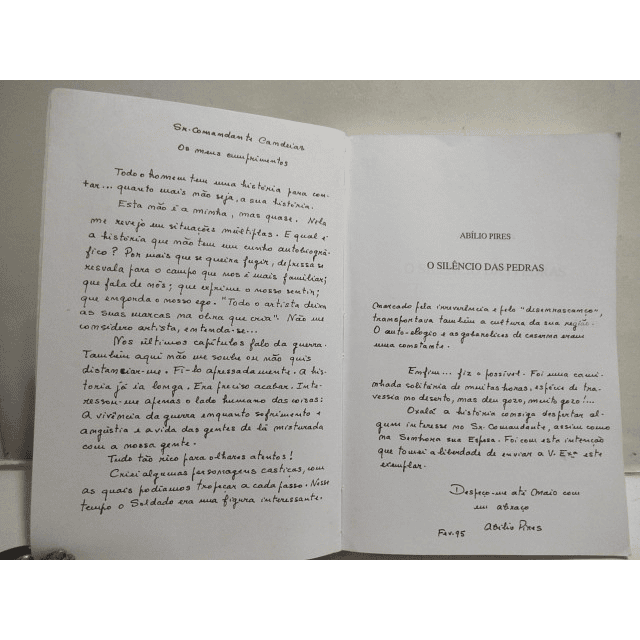 Sr. Comandante Candeias
Os meus cumprimentos
Todo o homem tem uma história para con-
tar... quanto mais não seja, a sua história.
Esta não é a minha, mas quase. Nela
me revejo em situações múltiplas. E qual é
a história que não tem um cunho autobiográ-
fico? Por mais que se queira fugir, depressa se
resvala para o campo que nos é mais familiar;
que fala de nós; que exprime o nosso sentir;
que engorda o nosso ego. "Todo o artista deixa
as suas marcas na obra que cria". Não me
considero artista, entenda-se...
Nos últimos capítulos falo da guerra.
Também aqui não me soube ou não quis
distanciar-me. Fi-lo apressadamente. A his-
tória já ia longa. Era preciso acabar. Inte-
ressou-me apenas o lado humano das coisas:
A vivência da guerra enquanto sofrimento e
angústia e a vida das gentes de lá misturada
com a nossa gente.
Tudo tão rico para olhares atentos!
Criei algumas personagens castiças, com
as quais podíamos tropeçar a cada passo. Nesse
tempo o Soldado era uma figura interessante.
ABÍLIO PIRES
O SILÊNCIO DAS PEDRAS
Marcado pela irreverência e pelo "desenrascanço",
transportava também a cultura da sua região.
O auto-elogio e as gabarolices de caserna eram
uma constante.
Enfim... fiz o possível. Foi uma cami-
nhada solitária de muitas horas, espécie de tra-
vessia no deserto, mas deu gozo, muito gozo!...
Oxalá a história consiga despertar al-
gum interesse no Sr. Comandante, assim como
na Senhora sua Esposa. Foi com esta intenção
que tomei a liberdade de enviar a V. Exª este
exemplar.
Despeço-me até Maio com
um abraço
Abílio Pires
Fev. 95